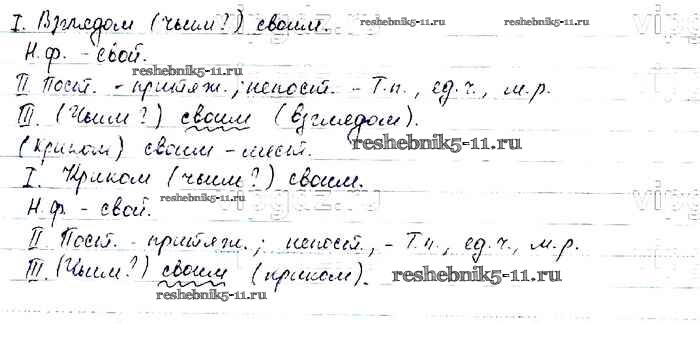 I. Взглядом (чьим?) своим.
Н.ф. - свой.
II Пост. - притяж.; непост. - Т.п., ед.ч., м.р.
III. (Чьим?) своим (взглядом).
(Криком) своим - мест.
I. Криком (чьим?) своим.
Н.ф. - свой.
II Пост. - притяж.; непост., - Т.п., ед.ч., м.р.
III. (Чьим?) своим (криком).
reshebnik5-11.ru
reshebnik5-11.ru
reshebnik5-11.ru
reshebnik5-11.ru
reshebnik5-11.ru
reshebnik5-11.ru
reshebnik5-11.ru